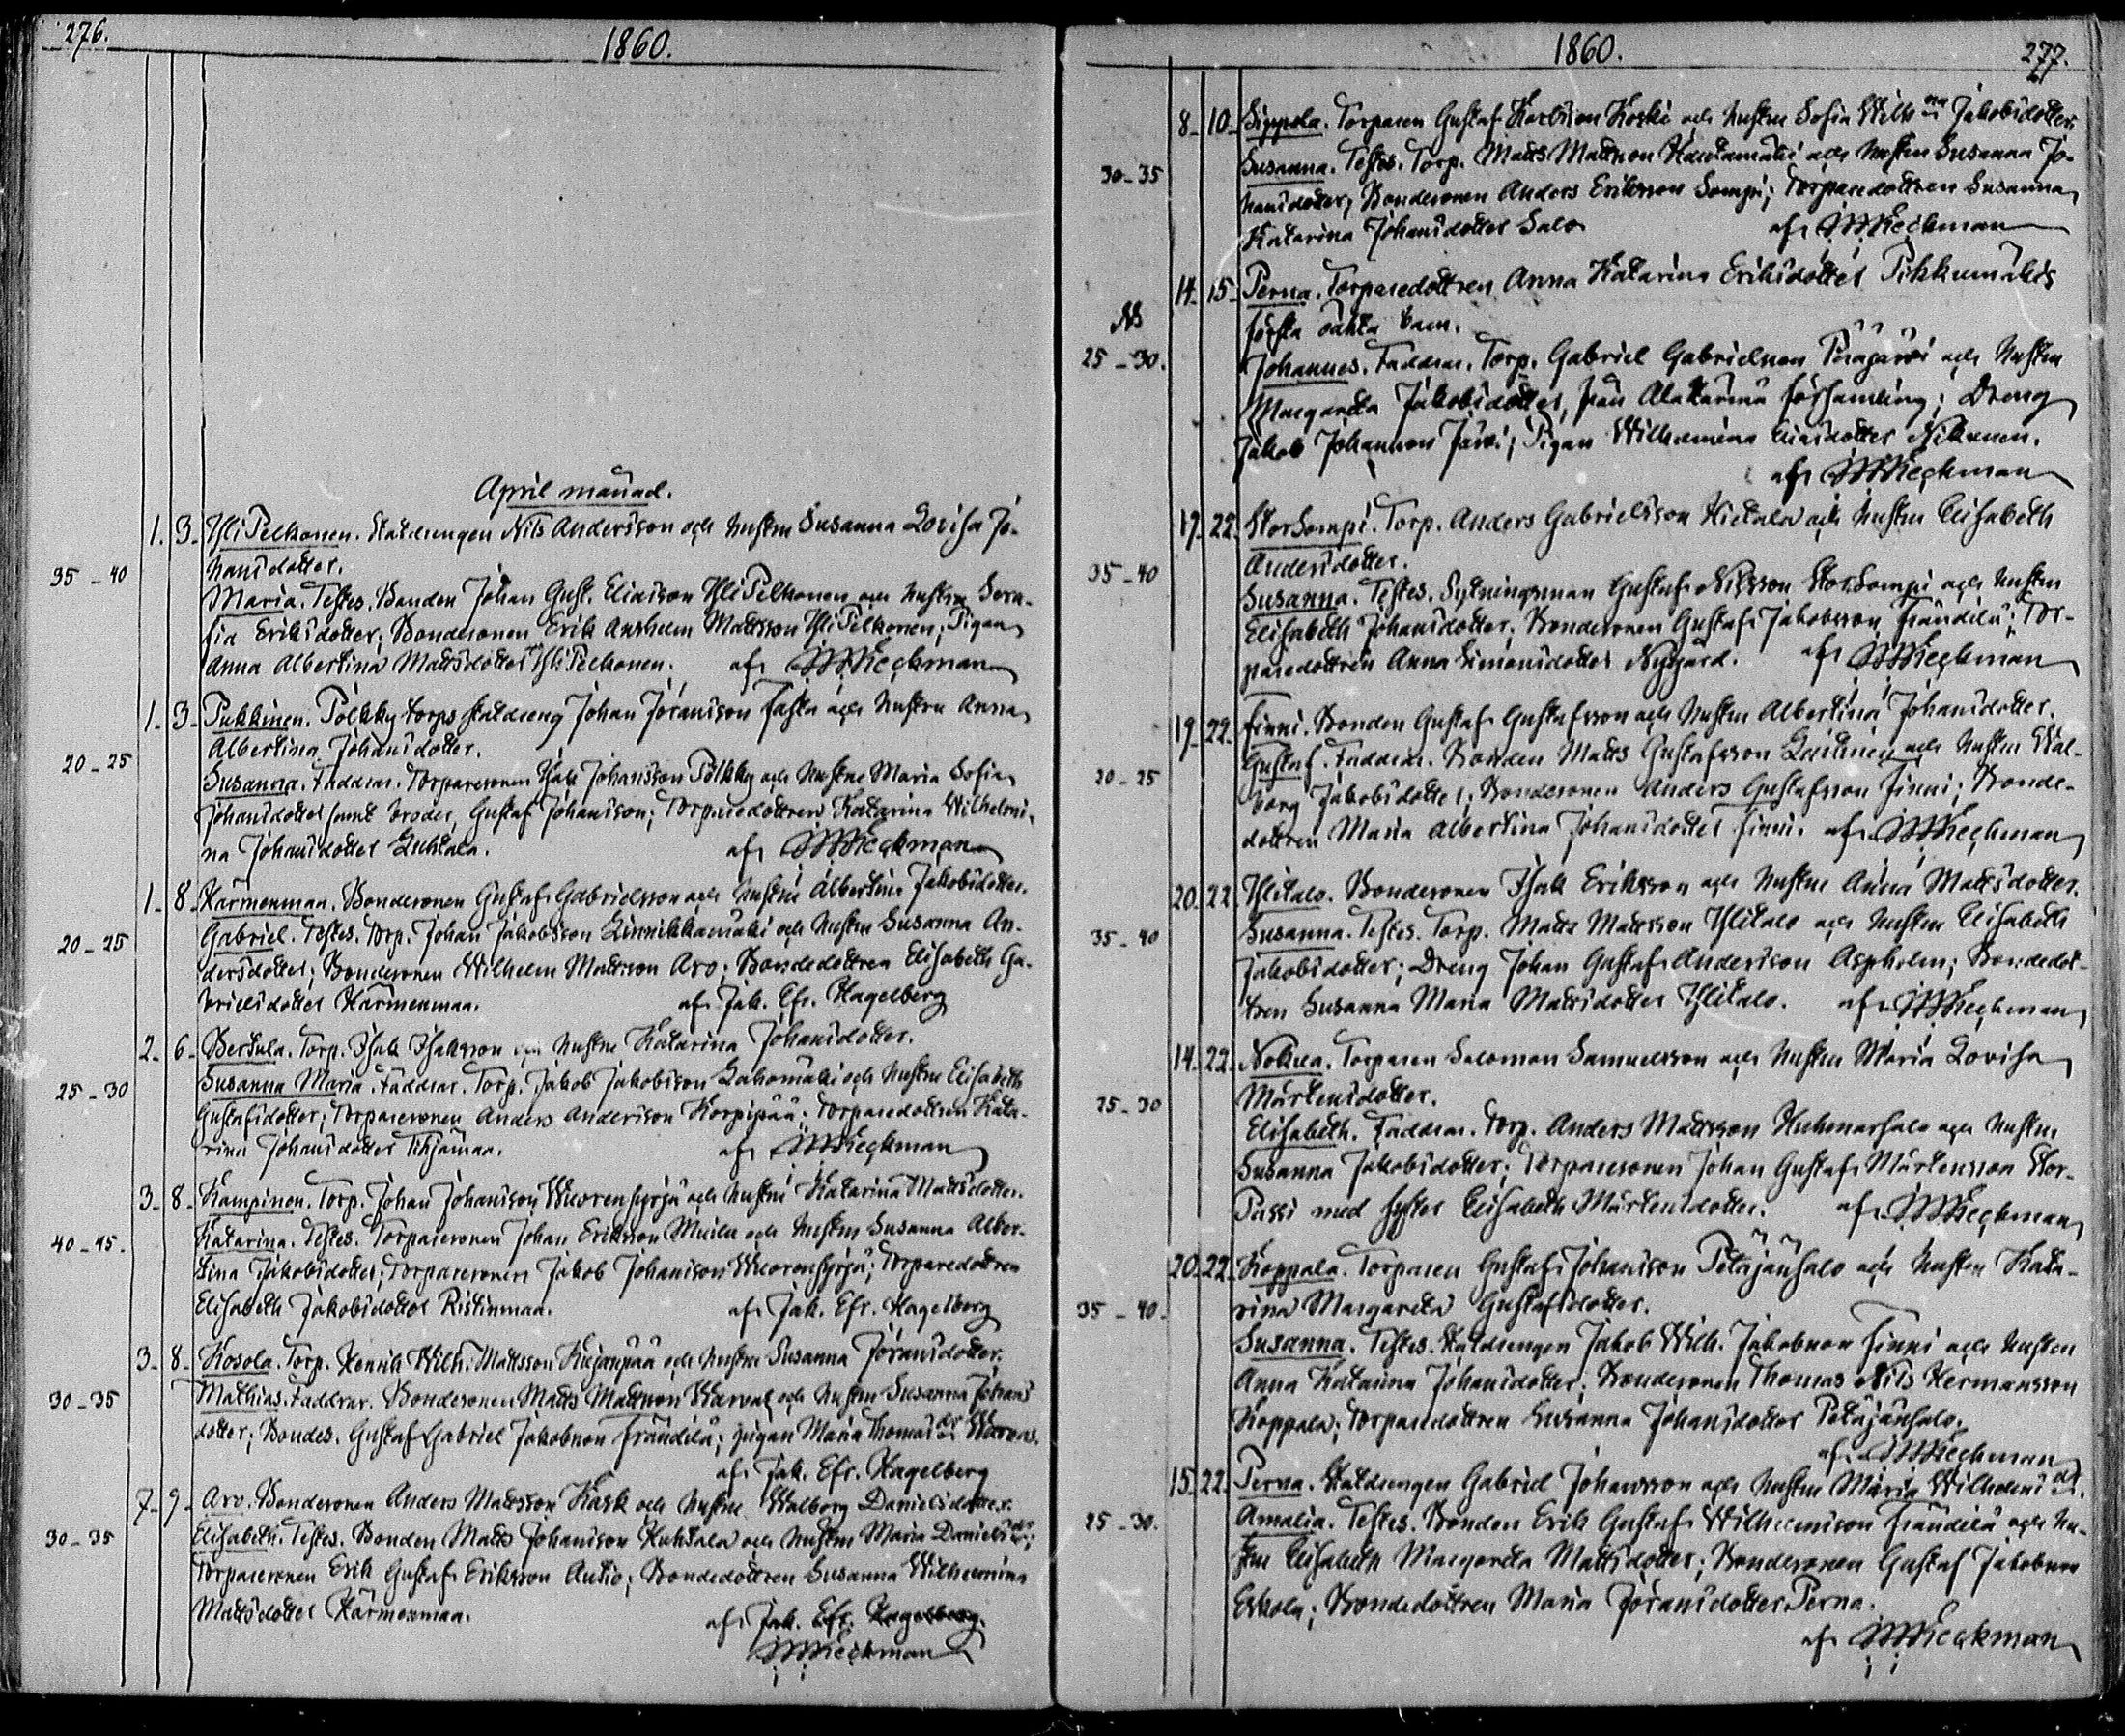 276.
1860.
April månad.
1. 3. Ylipelkonen. Statdrengen Nils Andersson och hustru Susanna Lovisa Jo-
35-40 hansdotter.
Maria. Testes. Bonden Johan Gust. Eliaison Ylipelkonen och hustru Sera-
fia Eriksdotter; Bondesonen Erik Anshelm Mattsson Ylipelkonen; Pigan
Anna Albertina Mattsdotter Ylipelkonen. af
1. 3. Pukkinen. Pölkky torps statdreng Johan Jöransson Pasta och hustru Anna
20-25 Albertina Johansdotter.
Susanna. Faddrar. Torparesonen Isak Johansson Pölkky och hustru Maria Sofia
Johansdotter samt broder, Gustaf Johansson; Torparedottren Katarina Wilhelmi-
na Johansdotter Luhtala. af
1. 8. Kärmenmaa. Bondesonen Gustaf Gabrielsson och hustru Albertina Jakobsdotter.
20-25 Gabriel. Testes. Torp. Johan Jakobsson Linnikkamäki och hustru Susanna An-
dersdotter; Bondesonen Wilhelm Mattsson Aro; Bondedottren Elisabeth Ga-
brielsdotter Kärmenmaa. af Jak. Efr. Hagelberg
2. 6. Bertula. Torp. Isak Isaksson och hustru Katarina Johansdotter.
25-30 Susanna Maria. Faddrar. Torp. Jakob Jakobsson Lahomäki och hustru Elisabeth
Gustafsdotter; Torparesonen Anders Andersson Korpipää; Torparedottren Kata-
rina Johansdotter Tihjämaa. af
3. 8. Kampinen. Torp. Johan Johansson Wuorensyrjä och hustru Katarina Mattsdotter.
40-45. Katarina. Testes. Torparesonen Johan Eriksson och hustru Susanna Alber-
tina Jakobsdotter; Torparesonen Jakob Johansson Wuorensyrjä; Torparedottren
Elisabeth Jakobsdotter Ristinmaa. af Jak. Efr. Hagelberg
3. 8. Kosola. Torp. Henrik Wilh. Mattsson Kujanpää och hustru Susanna Jöransdotter.
30-35 Mathias. Faddrar. Bondesonen Matts Mattsson och hustru Susanna Johans
dotter; Bondes. Gustaf Gabriel Jakobsson Frändilä; pigan Maria Thomasdr
af Jak. Efr. Hagelberg
7. 9. Aro. Bondesonen Anders Mattsson Kask och hustru Walborg Danielsdotter.
30-35 Elisabeth. Testes. Bonden Matts Johansson Huhtala och hustru Maria Danielsdr;
Torparesonen Erik Gustaf Eriksson Autio; Bondedottren Susanna Wilhelmina
Mattsdotter Kärmenmaa. af Jak. Efr. Hagelberg.
1860.
277.
8. 10. Sippola. Torparen Gustaf Karlsson Koski och hustru Sofia Wilhna Jakobsdotter
30-35 Susanna. Testes. Torp. Matts Mattsson Hautamäki och hustru Susanna Jo-
hansdotter; Bondesonen Anders Eriksson Sompi; Torparedottren Susanna
Katarina Johansdotter Salo af
14. 15. Perna. Torparedottren Anna Katarina Eriksdotter Pikkumäkis
första oäkta barn.
25-30. Johannes. Faddrar. Torp. Gabriel Gabrielsson och hustru
Margareta Jakobsdotter, från Alakärmä församling; Dreng
Jakob Johansson Järvi; Pigan Wilhelmina Eliasdotter Nikunen.
af
17. 22. Storsompi. Torp. Anders Gabrielsson Hietala och hustru Elisabeth
35-40 Andersdotter.
Susanna. Testes. Sytningsman Gustaf Nilsson Storsompi och hustru
Elisabeth Johansdotter; Bondesonen Gustaf Jakobsson Frändilä; Tor-
paredottren Anna Simonsdotter Nygård. af
19. 22. Finni. Bonden Gustaf Gustafsson och hustru Albertina Johansdotter.
20-25 Gustaf. Faddrar. Bonden Matts Gustafsson och hustru Wal-
borg Jakobsdotter; Bondesonen Anders Gustafsson Finni; Bonde-
dottren Maria Albertina Johansdotter Finni. af
20. 22. Ylitalo. Bondesonen Isak Eriksson och hustru Anna Mattsdotter.
35-40 Susanna. Testes. Torp. Matts Mattsson Ylitalo och hustru Elisabeth
Jakobsdotter; Dreng Johan Gustaf Andersson Aspholm; Bondedot-
tren Susanna Maria Mattsdotter Ylitalo. af
14. 22. Nokua. Torparen Salomon Samuelsson och hustru Maria Lovisa
25-30 Mårtensdotter.
Elisabeth. Faddrar. Torp. Anders Mattsson Huhmarsalo och hustru
Susanna Jakobsdotter; Torparesonen Johan Gustaf Mårtensson Stor-
Passi med syster Elisabeth Mårtensdotter. af
20. 22. Koppala. Torparen Gustaf Johansson Petäjänsalo och hustru Kata-
35-40. rina Margareta Gustafsdotter.
Susanna. Testes. Statdrengen Jakob Wilh. Jakobsson Finni och hustru
Anna Katarina Johansdotter; Bondesonen Thomas Nils Hermansson
Koppala; Torparedottren Susanna Johansdotter Petäjänsalo.
af
15. 22. Perna. Statdrengen Gabriel Johansson och hustru Maria Wilhelmsdr.
25-30. Amalia. Testes. Bonden Erik Gustaf Wilhelmsson Frändilä och hu-
stru Elisabeth Margareta Mattsdotter; Bondesonen Gustaf Jakobsson
Eskola; Bondedottren Maria Jöransdotter Perna.
af